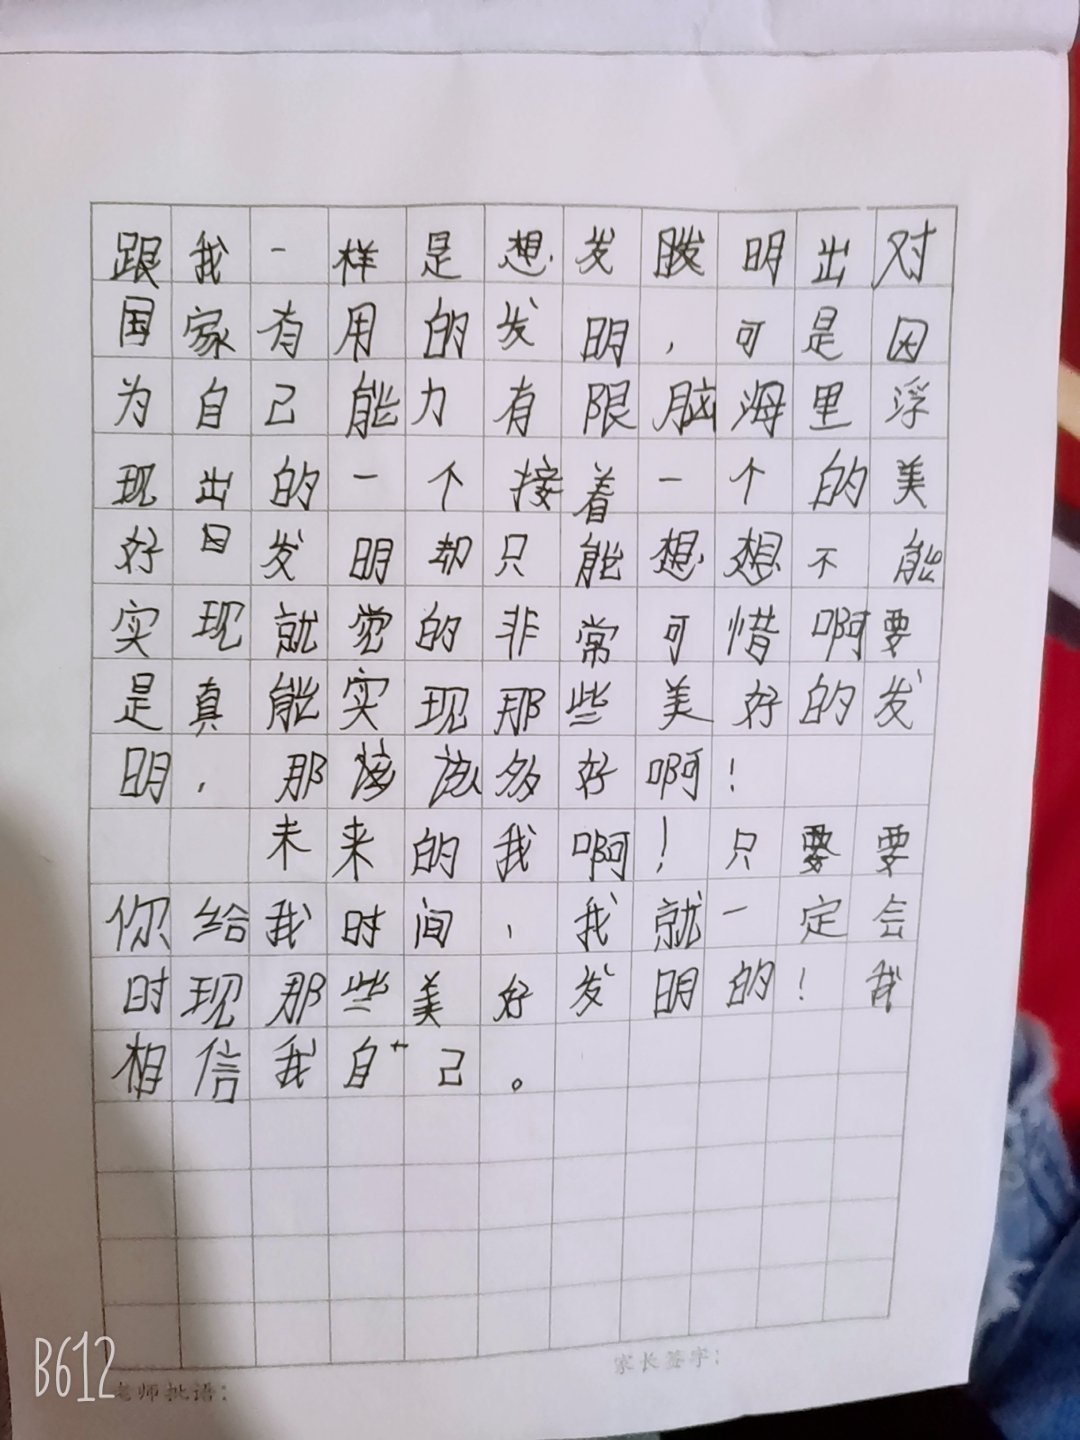 跟我一样是想发明出对
国家有用的发明，可是因
为自己能力有限脑海里浮
现出的一个接着一个的美
好日发明却只能想想不能
实现就觉的非常可惜啊要
是真能实现那些美好的发
明，那该该多好啊！
未来的我啊！只要要
你给我时间，我就一定会
时现那些美好发明的！我
相信我自己。
家长签字：
老师批语：
B612